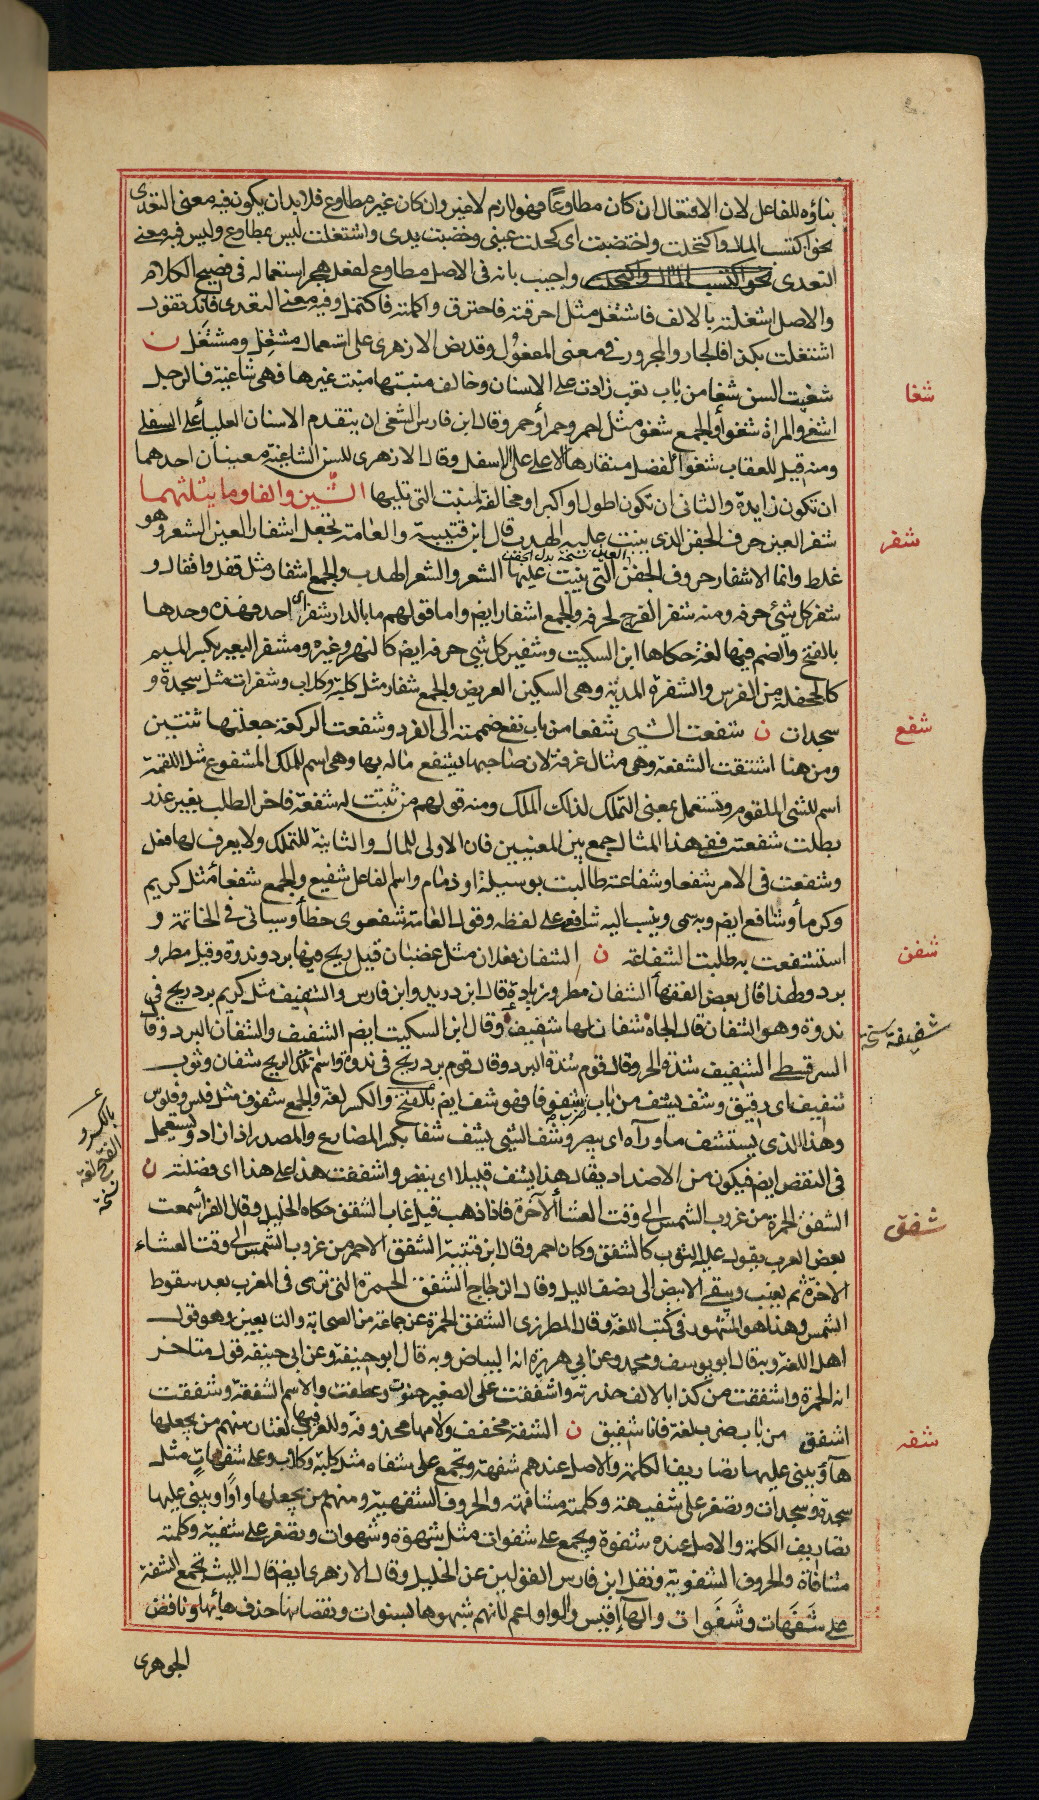 بناؤه للفاعل لان الافتعال ان كان مطاوعًا فهو لازم لا غير وان كان غير مطاوع فلا بد ان يكون فيه معنى التعدى
نحو اكتسب المال واكتحلت واختضبت اى كحلت عينى وخضبت يدى واشتغلت ليس بمطاوع وليس فيه معنى
التعدى نحو اكتسب المال واكتحلت واجيب بانه فى الاصل مطاوع لفعل هجر استعماله فى فصيح الكلام
والاصل اشغلته بالالف فاشتغل مثل احرقته فاحترق واكملته فاكتمل وفيه معنى التعدى فانك تقول
اشتغلت بكذا فالجار والمجرور فى معنى المفعول وقد نص الازهرى على استعمال مشتغِل ومشتغَل ن
شغا
شغيت السن شغا من باب تعب زادت على الاسنان وخالف منبتها منبت غيرها فهى شاغية فالرجل
اشغى والمراة شغواء والجمع شغو مثل احمر وحمراء وحمر وقال ابن فارس الشغى ان يتقدم الاسنان العليا على السفلى
ومنه قيل للعقاب شغواء لفضل منقارها الاعلى على الاسفل وقال الازهرى للسن الشاغية معنيان احدهما
ان تكون زايدة والثانى ان تكون اطول او اكبر او مخالفة لمنبت التى تليها الشين والفا وما يثلثهما
شفر
شفر العين حرف الجفن الذى ينبت عليه الهدب قال ابن قتيبة والعامة تجعل اشفار العين الشعر وهو
غلط وانما الاشفار حروف الجفن التى ينبت عليها الشعر والشعر الهدب والجمع اشفار مثل قفل واقفال و
العين نسخة بدل الجفن
شفر كل شئ حرفه ومنه شفر الفرج لحرفه والجمع اشفار ايضم واما قولهم ما بالدار شفر اى احد فهذه وحدها
بالفتح والضم فيها لغة حكاها ابن السكيت وشفير كل شئ حرفه ايضم كالنهر وغيره ومشفر البعير بكسر الميم
كالجحفلة من الفرس والشفرة المدية وهى السكين العريض والجمع شفار مثل كلبة وكلاب وشفرات مثل سجدة و
شفع
سجدات ن شفعت الشئ شفعا من باب نفع ضممته الى الفرد وشفعت الركعة جعلتها ثنتين
ومن هنا اشتقت الشفعة وهى مثال غرفة لان صاحبها يشفع ماله بها وهى اسم للملك المشفوع مثل اللقمة
اسم للشئ الملقوم وتستعمل بمعنى التملك لذلك الملك ومنه قولهم من ثبتت له شفعة فاخر الطلب بغير عذر
بطلت شفعته ففى هذا المثال جمع بين المعنيين فان الاولى للمال والثانية للتملك ولا يعرف لها فعل
وشفعت فى الامر شفعا وشفاعة طالبت بوسيلة او ذمام واسم الفاعل شفيع والجمع شفعاء مثل كريم
وكرماء وشافع ايضم وبه سمى وينسب اليه شافعى على لفظه وقول العامة شفعوى خطأ وسياتى فى الخاتمة و
شفن
استشفعت به طلبت الشفاعة ن الشفان فعلان مثل غضبان قيل ريح فيها برد وندوة وقيل مطر و
برد ولهذا قال بعض الفقهاء الشفان مطر وزيادة قال ابن دريد وابن فارس والشفيف مثل كريم برد ريح فى
ندوة وهو الشفان قال الجاه شفان لها شفيف وقال ابن السكيت ايضم الشفيف والشفان البرد وقا
شفيفة نسخة
السرقسطى الشفيف شدة الحر وقال قوم شدة البرد وقال قوم برد ريح فى ندوة واسم تلك الريح شفان وثوب
شفيف اى رقيق وشف يشف من باب شفوفا فهو شف ايضم بالفتح والكسر لغة والجمع شفوف مثل فلس وفلوس
بالكسر و
الفتح لغة
نسخة
وهذا الذى يستشف ما وراه اى يبصر وشف الشئ يشف شفا بكسر المضارع والمصدر اذا زاد ويستعمل
فى النقص ايضم فيكون من الاضداد يقال هذا يشف قليلا اى ينقص واشففت هذا على هذا اى فضلته ن
شفق
الشفق الحمرة من غروب الشمس الى وقت العشاء الآخرة فاذا ذهب قيل غاب الشفق حكاه الخليل وقال الفراء سمعت
بعض العرب يقول عليه الثوب كالشفق وكان احمر وقال ابن قتيبة الشفق الاحمر من غروب الشمس الى وقت العشاء
الاخرة ثم يغيب ويبقى الابيض الى نصف الليل وقال الزجاج الشفق الحمرة التى ترى فى المغرب بعد سقوط
الشمس وهذا هو المشهور فى كتب اللغة وقال المطرزى الشفق الحمرة عن جماعة من الصحابة والتابعين وهو قول
اهل اللغة وبه قال ابو يوسف ومحمد وعن ابى هريرة انه البياض وبه قال ابو حنيفة وعن ابى حنيفة قول متاخر
انه الحمرة واشفقت من كذا بالالف حذرته واشفقت على الصغير حنوت وعطفت والاسم الشفقة وشفقت
شفه
اشفق من باب ضرب لغة فانا شفيق ن الشفة مخفف ولامها محذوفة وللعرب فيها لغتان منهم من يجعلها
هآء ويبنى عليها تصاريف الكلمة والاصل عندهم شفهة وتجمع على شفاه مثل كلبة وكلاب وعلى شفهات مثل
سجدة وسجدات وتصغر على شفيهة وكلمته مشافهة والحروف الشفهية ومنهم من يجعلها واوا ويبنى عليها
تصاريف الكلمة والاصل عنده شفوة ويجمع على شفوات مثل شهوة وشهوات وتصغر على شفية وكلمته
مشافاة والحروف الشفوية ونقل ابن فارس القولين عن الخليل وقال الازهرى ايضا قال الليث تجمع الشفة
على شَفَهات وشَفَوات والهآء اقيس والواو اعم لانهم شبهوها بسنوات ونقصانها حذف هائها وناقض
الجوهرى